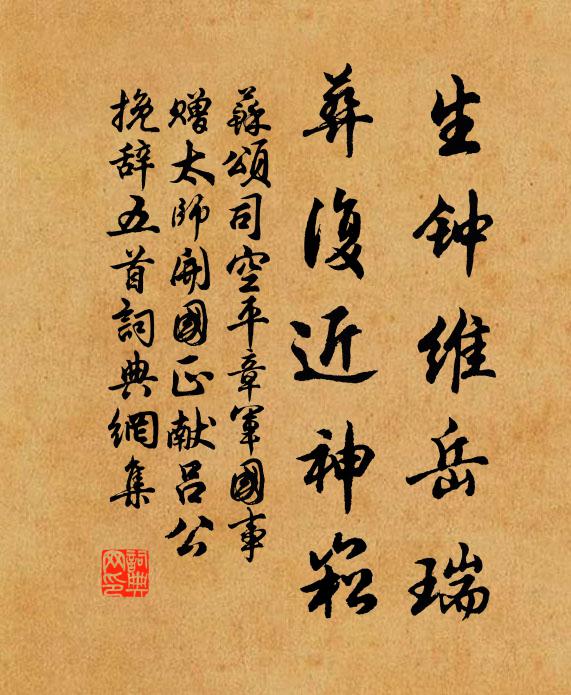 生钟维岳瑞
葬復近神崧
蘇頌司空平章軍國事
赠太师開國正献吕公
挽辞五首詞典網集
詞典
网印